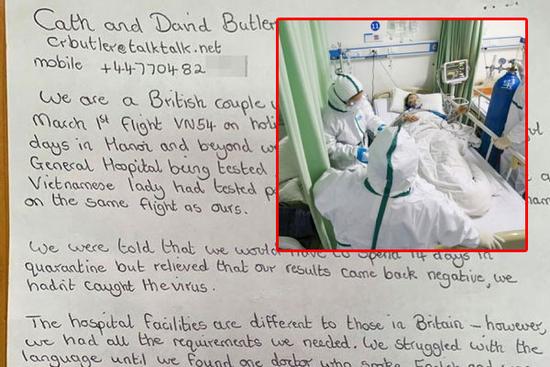 Cath and David Butler
crbutler@talktalk.net
mobile +44770482
11
We are a British couple
March 1st flight VN54 on holi
days in Hanoi and beyond w
General Hospital being tested
Vietnamese lady had tested p
on the same flight as ours.
We were told that we would have to spend 14 days in
quarantine but relieved that our results came back negative, we
hadn't caught the virus.
The hospital facilities are different to those in Britain – however,
we had all the requirements we needed. We struggled with the
language until we found one doctor who spoke English and